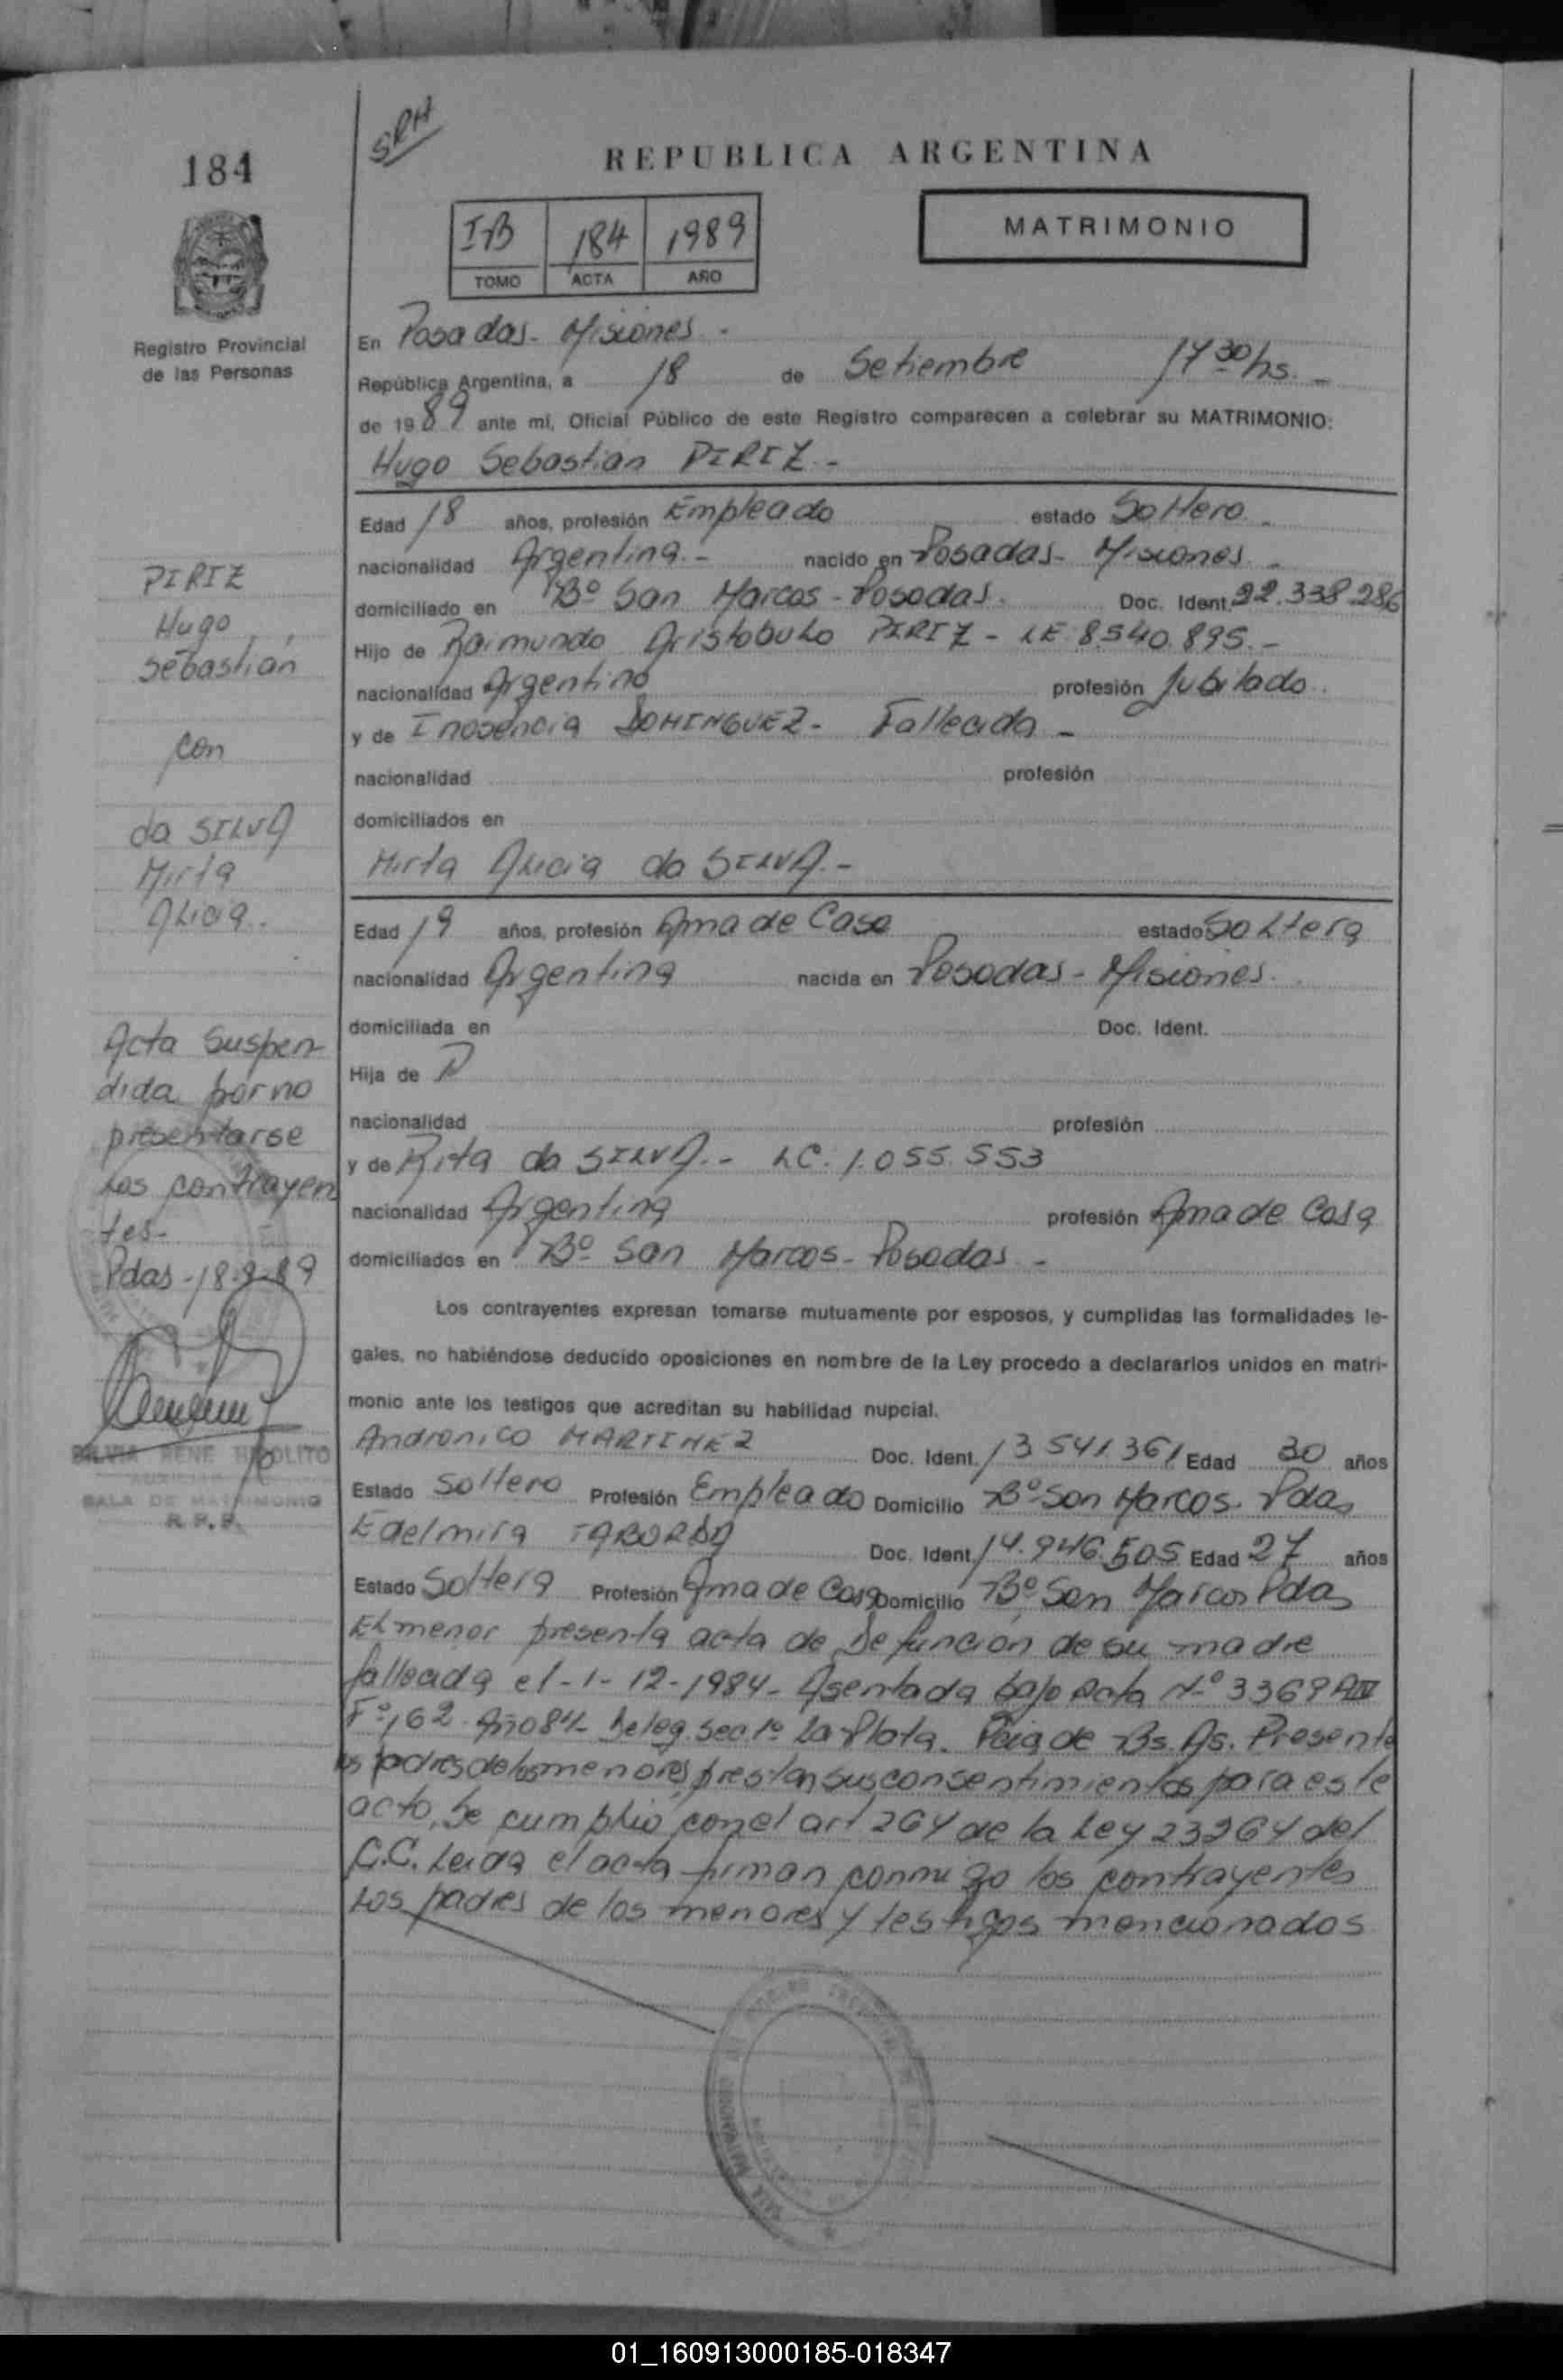 SRH
184
REPUBLICA ARGENTINA
IB 184 1989
TOMO ACTA AÑO
MATRIMONIO
Registro Provincial
de las Personas
En Posadas - Misiones -
República Argentina, a 18 de Setiembre 17 30 hs. -
de 1989 ante mi, Oficial Público de este Registro comparecen a celebrar su MATRIMONIO:
Hugo Sebastian PIRIZ -
Edad 18 años, profesión Empleado estado Soltero -
nacionalidad Argentina.- nacido en Posadas - Misiones -
domiciliado en Bº San Marcos - Posadas. Doc. Ident. 22.338.286
Hijo de Raimundo Aristobulo PIRIZ - LE 8.540.895.-
nacionalidad Argentino profesión Jubilado.
y de Inosencia DOMINGUEZ - Fallecida -
nacionalidad profesión
domiciliados en
Mirta Alicia da SILVA.-
Edad 19 años, profesión Ama de Casa estado Soltera
nacionalidad Argentina nacida en Posadas - Misiones.
domiciliada en Doc. Ident.
Hija de
nacionalidad profesión
y de Rita da SILVA.- LC. 1.055.553
nacionalidad Argentina profesión Ama de Casa
domiciliados en Bº San Marcos - Posadas -
Los contrayentes expresan tomarse mutuamente por esposos, y cumplidas las formalidades le-
gales, no habiéndose deducido oposiciones en nombre de la Ley procedo a declararlos unidos en matri-
monio ante los testigos que acreditan su habilidad nupcial.
Andronico MARTINEZ Doc. Ident. 13.541.361 Edad 30 años
Estado Soltero Profesión Empleado Domicilio Bº San Marcos. Pdas
Edelmira TABORDA Doc. Ident. 14.946.505 Edad 27 años
Estado Soltera Profesión Ama de Casa Domicilio Bº San Marcos Pdas
El menor presenta acta de Defunción de su madre
fallecida el - 1 - 12 - 1984 - Asentada bajo Acta Nº 3369
Fº 162 - Año 84 - Deleg. Sec. 1º La Plata. Pcia de Bs. As. Presente
los padres de los menores, prestan sus consentimientos para este
acto, Se cumplió con el art 264 de la Ley 23264 del
C.C. Leida el acta firman conmigo los contrayentes
Los padres de los menores y testigos mencionados
PIRIZ
Hugo
Sebastián
con
da SILVA
Mirta
Alicia.
Acta Suspen-
dida por no
presentarse
Los contrayen
tes-
Pdas - 18-9-89
SILVIA RENE HIPOLITO
AUXILIAR
SALA DE MATRIMONIO
R. P. P.
01_160913000185-018347